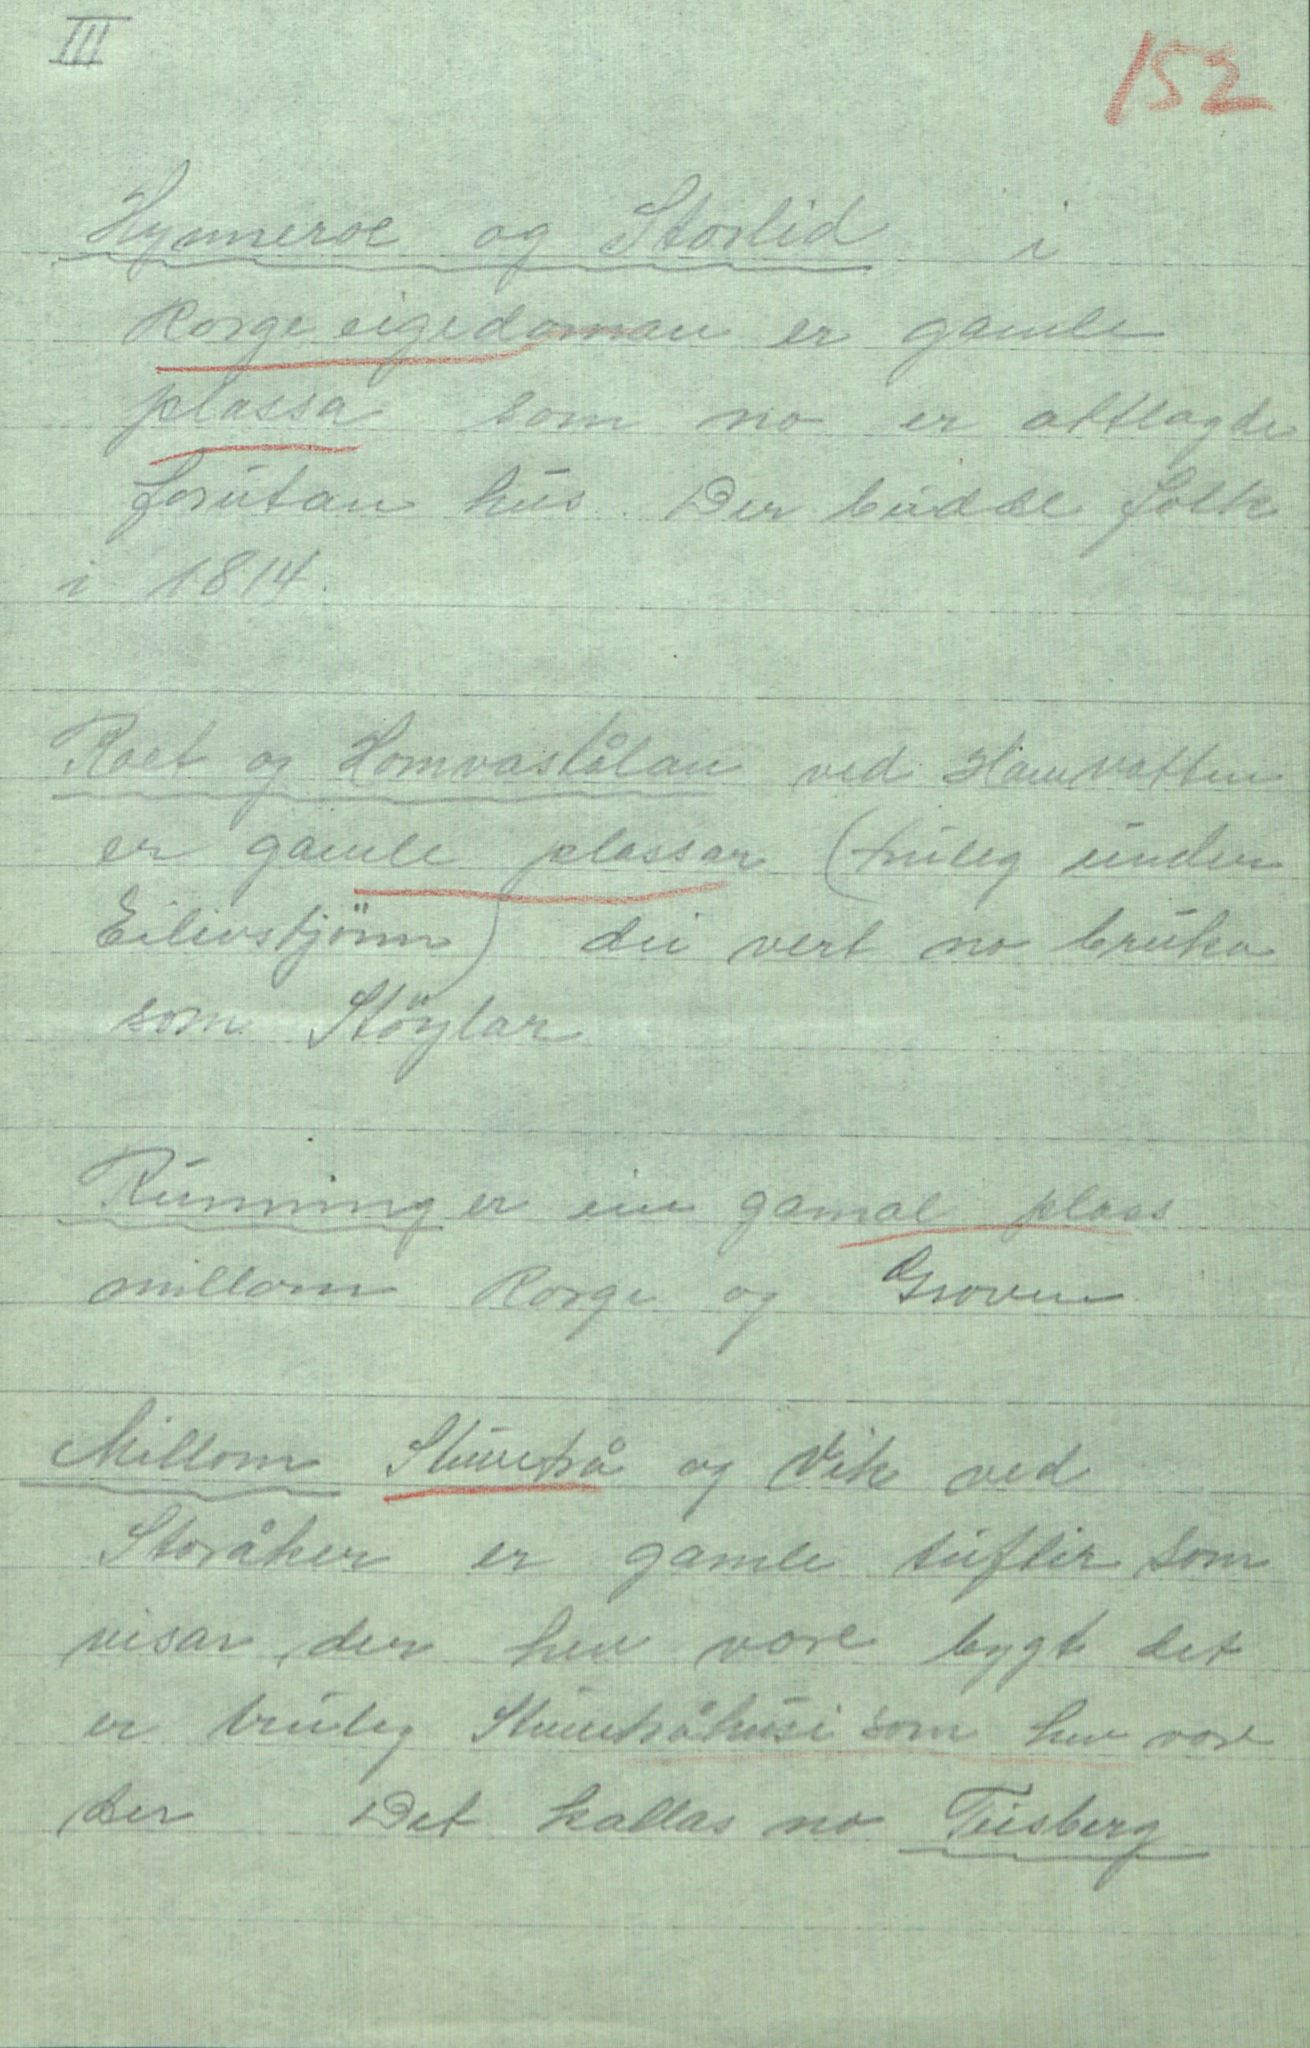 III
152
Hynneroe og Storlid i
Rorge eigedoman er gamle
plassa som no er attlagde
forutan hus. Der budde folk
i 1814.
Roet og Homvastålan ved Hamvatten
er gamle plassar (truleg under
Eilivstjönn) dei vert no bruka
som Stöylar
Running er ein gamal plass
millom Rorge og Groven
Millom Stuvetrå og Vik ved
Storåker er gamle tufter som
visar der hev vore bygt det
er truleg Stuvetråhusi som hev vore
der Det kallas no Tusberg